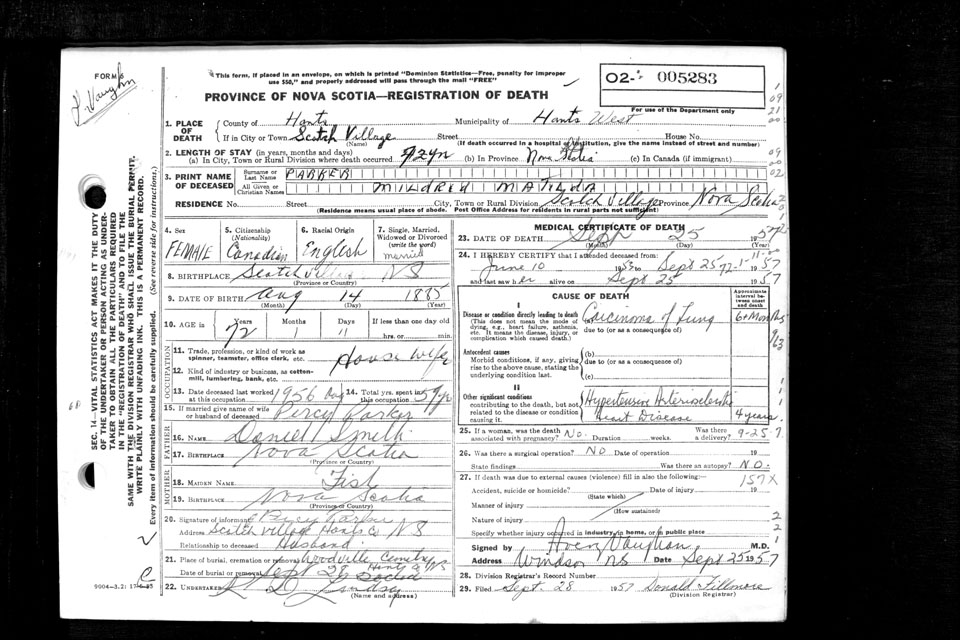 FORM 6
Vaughn
This form, if placed in an envelope, on which is printed "Dominion Statistics—Free, penalty for improper
use $50," and properly addressed will pass through the mail "FREE"
02- 005283
For use of the Department only
PROVINCE OF NOVA SCOTIA—REGISTRATION OF DEATH
1. PLACE OF DEATH
County of Hants Municipality of Hants West
If in City or Town Scotch Village Street House No.
(Name) (If death occurred in a hospital or institution, give the name instead of street and number)
2. LENGTH OF STAY (in years, months and days)
(a) In City, Town or Rural Division where death occurred 72 yr (b) In Province Nova Scotia (c) In Canada (if immigrant)
3. PRINT NAME OF DECEASED
Surname or Last Name PARKER
All Given or Christian Names MILDRED MATILDA
RESIDENCE No. Street City, Town or Rural Division Scotch Village Province Nova Scotia
(Residence means usual place of abode. Post Office Address for residents in rural parts not sufficient)
4. Sex FEMALE
5. Citizenship (Nationality) Canadian
6. Racial Origin English
7. Single, Married, Widowed or Divorced (write the word) married
8. BIRTHPLACE Scotch Village NS
(Province or Country)
9. DATE OF BIRTH Aug 14 1885
(Month) (Day) (Year)
10. AGE in Years Months Days If less than one day old
72 1 11 hrs. or min.
OCCUPATION
11. Trade, profession, or kind of work as spinner, teamster, office clerk, etc. House wife
12. Kind of industry or business, as cotton-mill, lumbering, bank, etc.
13. Date deceased last worked at this occupation 1956 Aug
14. Total yrs. spent in this occupation 51 yr
15. If married give name of wife or husband of deceased Percy Parker
FATHER
16. NAME Daniel Smith
17. BIRTHPLACE Nova Scotia
(Province or Country)
MOTHER
18. MAIDEN NAME Fish
19. BIRTHPLACE Nova Scotia
(Province or Country)
20. Signature of informant Percy Parker
Address Scotch Village Hants Co NS
Relationship to deceased Husband
21. Place of burial, cremation or removal Woodville Cemetery Hants Co NS
Date of burial or removal Sept 28
22. UNDERTAKER Lindsay
(Name and address)
MEDICAL CERTIFICATE OF DEATH
23. DATE OF DEATH Sept 25 1957
(Month) (Day) (Year)
24. I HEREBY CERTIFY that I attended deceased from:
June 10 1953 to Sept 25 1957
and last saw her alive on Sept 25 1957
CAUSE OF DEATH
Approximate interval between onset and death
I
Disease or condition directly leading to death
This does not mean the mode of dying, e.g., heart failure, asthenia, etc. It means the disease, injury, or complication which caused death.
Carcinoma of Lung 6+ Months
due to (or as a consequence of)
Antecedent causes
Morbid conditions, if any, giving rise to the above cause, stating the underlying condition last.
(b)
due to (or as a consequence of)
(c)
II
Other significant conditions contributing to the death, but not related to the disease or condition causing it.
Hypertensive Arteriosclerotic
Heart Disease 4 years.
25. If a woman, was the death associated with pregnancy? No. Duration weeks. Was there a delivery? 9-25-7
26. Was there a surgical operation? NO Date of operation 19
State findings Was there an autopsy? NO.
27. If death was due to external causes (violence) fill in also the following:
157X
Accident, suicide or homicide? Date of injury 19
(State which)
Manner of injury
(How sustained)
Nature of injury
Specify whether injury occurred in industry, in home, or in public place
Signed by Avery Vaughan M.D.
Address Windsor NS Date Sept 25 1957
28. Division Registrar's Record Number
29. Filed Sept. 28 1957 Donald Fillmore
(Division Registrar)
SEC. 14—VITAL STATISTICS ACT MAKES IT THE DUTY
OF THE UNDERTAKER OR PERSON ACTING AS UNDERTAKER TO OBTAIN ALL THE PARTICULARS REQUIRED
IN THE "REGISTRATION OF DEATH" AND TO FILE THE
SAME WITH THE DIVISION REGISTRAR WHO SHALL ISSUE THE BURIAL PERMIT.
WRITE PLAINLY WITH UNFADING INK. THIS IS A PERMANENT RECORD.
Every item of information should be carefully supplied. (See reverse side for instructions.)